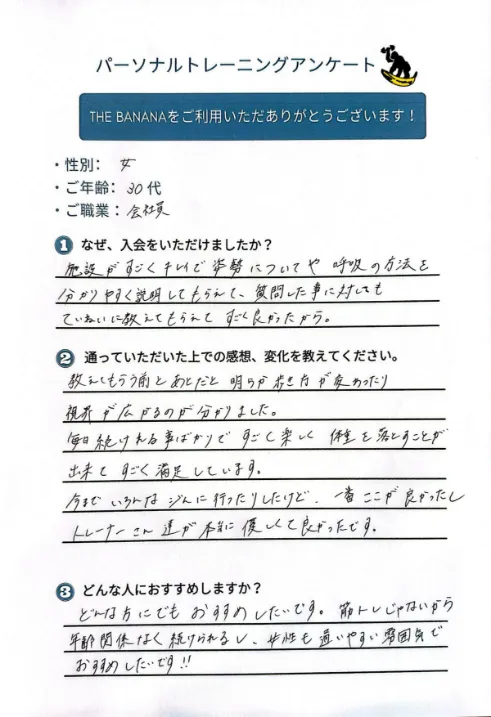 パーソナルトレーニングアンケート
THE BANANAをご利用いただありがとうございます！
・性別： 女
・ご年齢： 30代
・ご職業： 会社員
1 なぜ、入会をいただけましたか？
施設がすごくキレイで姿勢についてや呼吸の方法を
分かりやすく説明してもらえて、質問した事に対しても
ていねいに教えてもらえてすごく良かったから。
2 通っていただいた上での感想、変化を教えてください。
教えてもらう前とあとだと明らか歩き方が変わったり
視界が広がるのが分かりました。
毎日続けれる事ばかりですごく楽しく体重を落とすことが
出来てすごく満足しています。
今までいろんなジムに行ったりしたけど、一番ここが良かったし
トレーナーさん達が本当に優しくて良かったです。
3 どんな人におすすめしますか？
どんな方にでもおすすめしたいです。筋トレじゃないから
年齢関係なく続けられるし、女性も通いやすい雰囲気で
おすすめしたいです!!